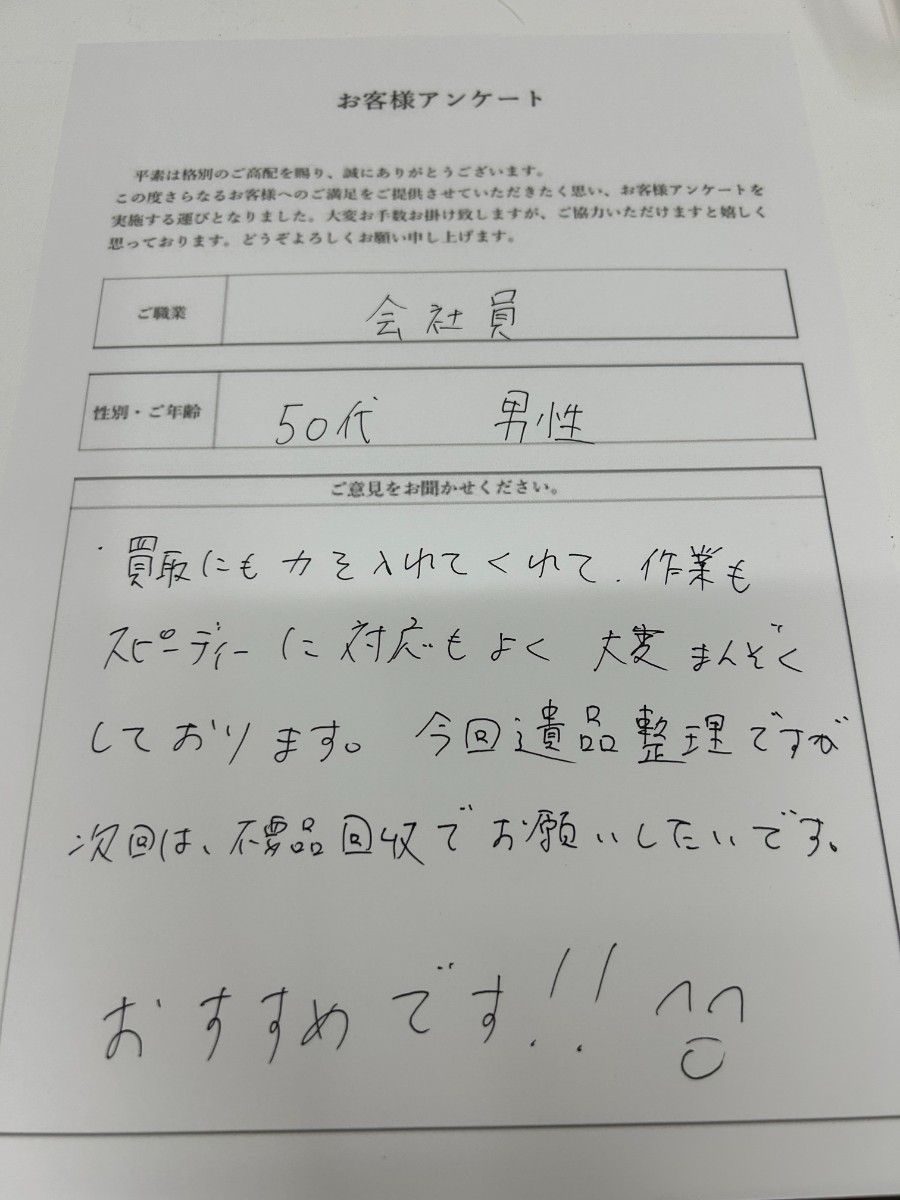 お客様アンケート
平素は格別のご高配を賜り、誠にありがとうございます。
この度さらなるお客様へのご満足をご提供させていただきたく思い、お客様アンケートを
実施する運びとなりました。大変お手数お掛け致しますが、ご協力いただけますと嬉しく
思っております。どうぞよろしくお願い申し上げます。
ご職業 会社員
性別・ご年齢 50代 男性
ご意見をお聞かせください。
・買取にも力を入れてくれて、作業も
スピーディーに対応もよく 大変まんぞく
しております。今回遺品整理ですが
次回は、不要品回収でお願いしたいです。
おすすめです!!